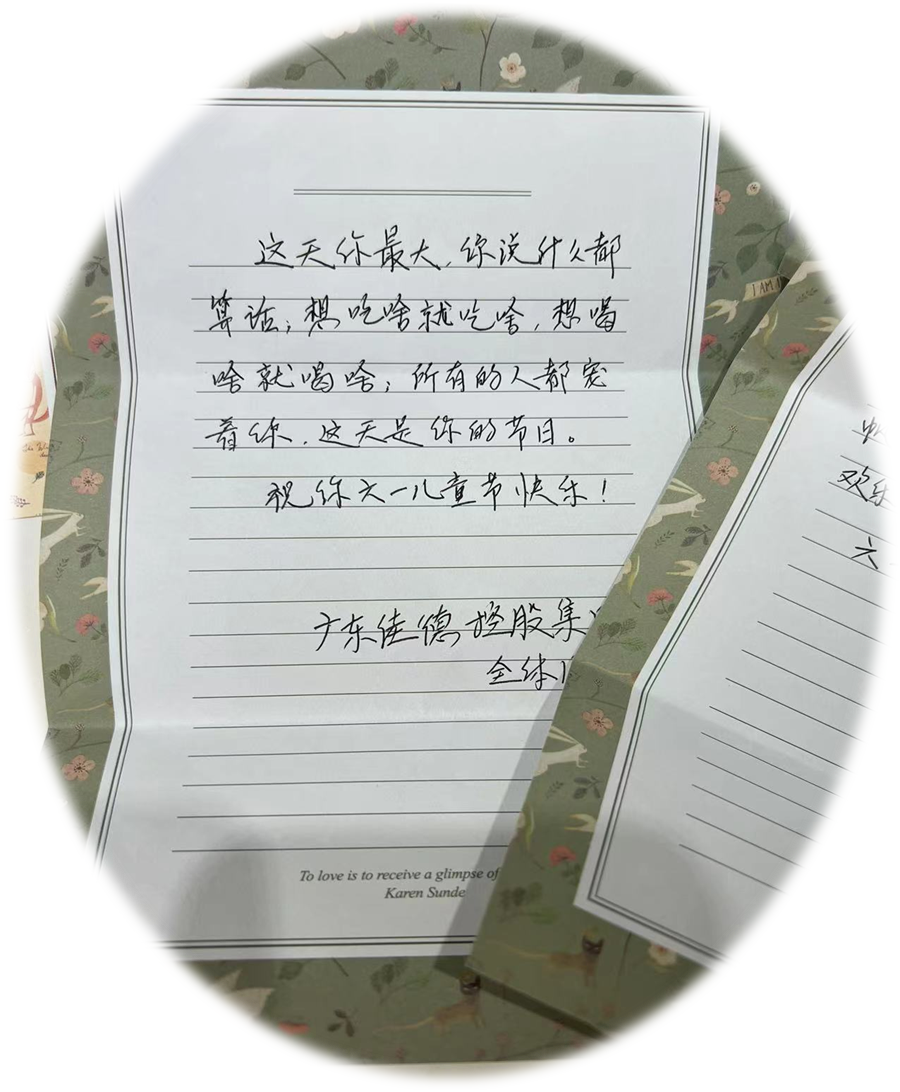 这天你最大，你说什么都
算话；想吃啥就吃啥，想喝
啥就喝啥；所有的人都宠
着你，这天是你的节日。
祝你六一儿童节快乐！
广东佳德控股集
全体
To love is to receive a glimpse of
Karen Sunde
I AM
欢乐
六